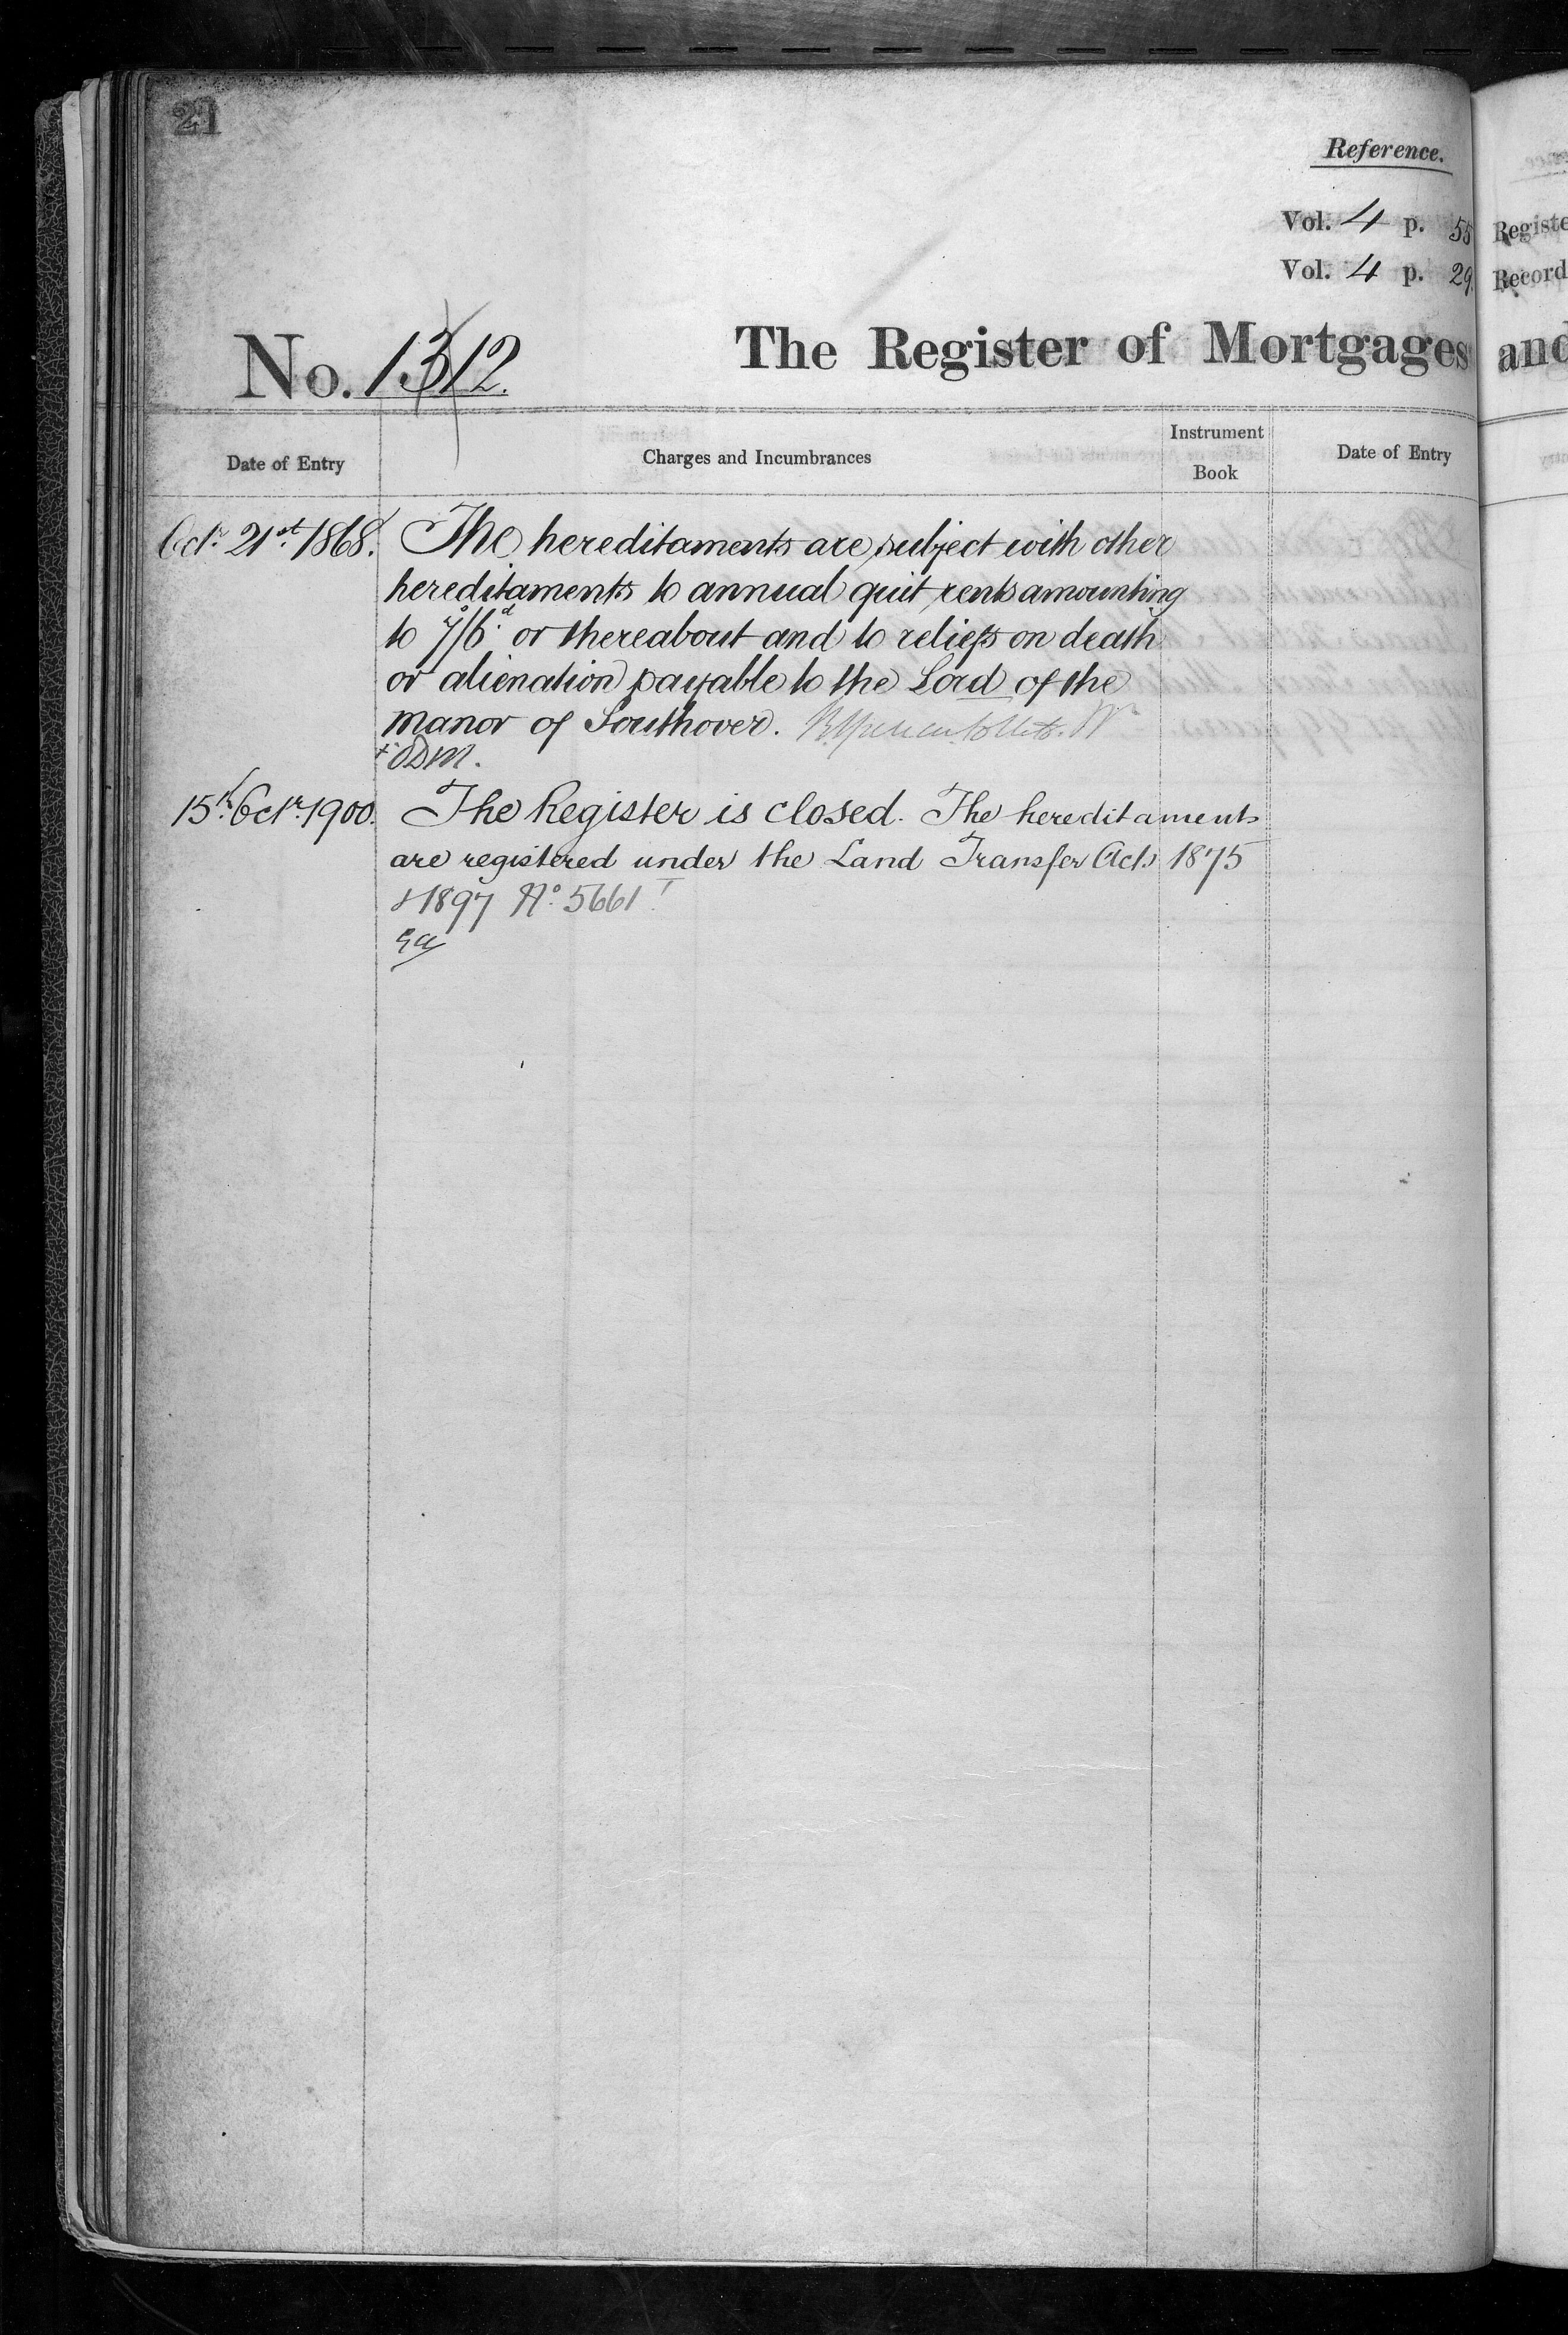 21
Reference.
Vol. 4 p. 55 Registe
Vol. 4 p. 29. Record
No. 1312. The Register of Mortgages and
Date of Entry Charges and Incumbrances Instrument Book Date of Entry
Octr. 21st. 1868. The hereditaments are subject with other
hereditaments to annual quit rents amounting
to 7s/6d. or thereabout and to reliefs on death
or alienation payable to the Lord of the
Manor of Southover.
+ ODM.
15th. Octr. 1900. The Register is closed. The hereditaments
are registered under the Land Transfer Acts 1875
& 1897 No. 5661